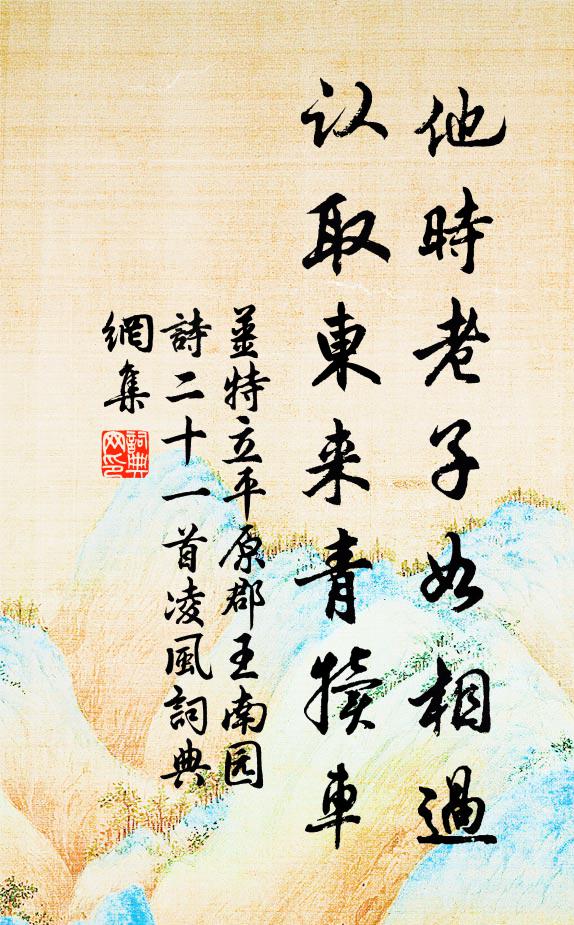 他時老子如相過
认取東来青犢車
姜特立平原郡王南园
詩二十一首凌風詞典
網集
詞典
网印